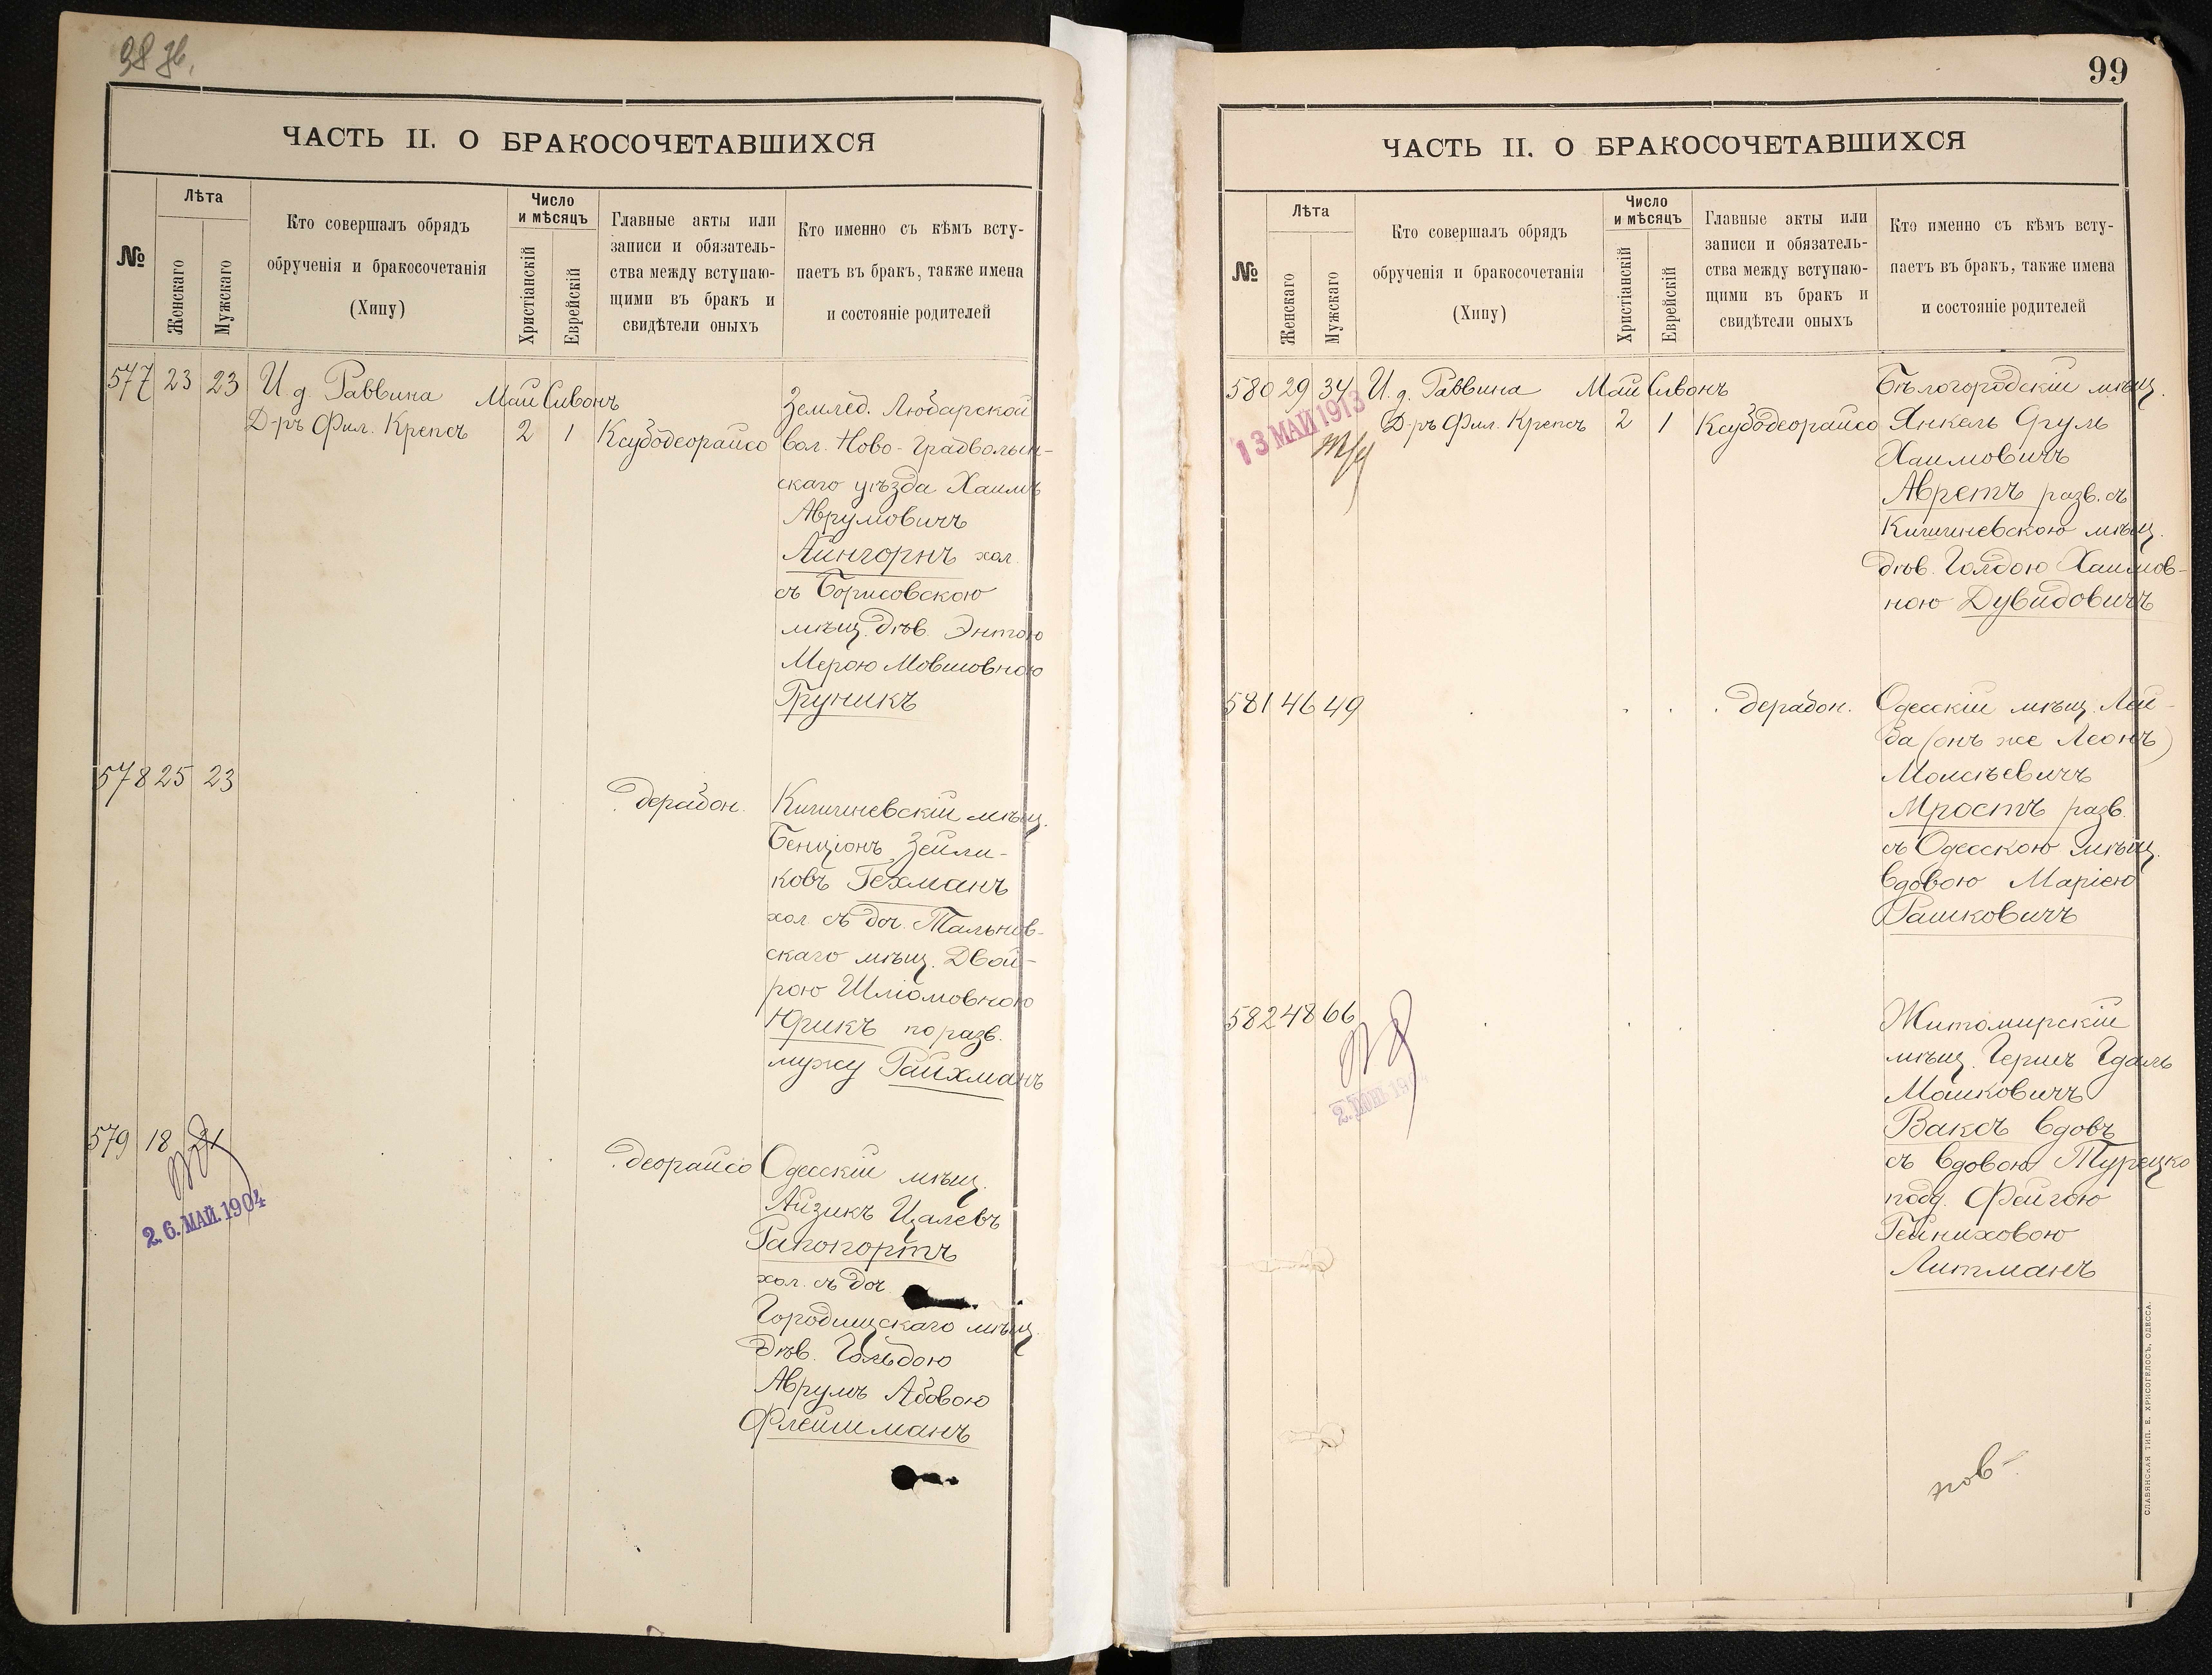 98 зв.
ЧАСТЬ II. О БРАКОСОЧЕТАВШИХСЯ
№
Лѣта
Женскаго
Мужскаго
Кто совершалъ обрядъ
обрученія и бракосочетанія
(Хипу)
Число
и мѣсяцъ
Христіанскій
Еврейскій
Главные акты или
записи и обязатель-
ства между вступаю-
щими въ бракъ и
свидѣтели оныхъ
Кто именно съ кѣмъ всту-
паетъ въ бракъ, также имена
и состояніе родителей
577 23 23 И. д. Раввина Май Сивонъ
Д-ръ Фил. Крепсъ 2 1 Ксубодеорайсо
Землед. Любарской
вол. Ново-Градволын-
скаго уѣзда Хаимъ
Аврумовичъ
Айнгорнъ хол.
съ Борисовскою
мѣщ. дѣв. Энтою
Мерою Мовшовною
Груникъ
578 25 23
дерабон.
Кишиневскій мѣщ.
Бенціонъ Зейли-
ковъ Гехманъ
хол. съ доч. Тальнов-
скаго мѣщ. Двой-
рою Шліомовною
Юрикъ по разв.
мужу Райхманъ
579 18 21
2.6. МАЙ. 1904
деорайсо
Одесскій мѣщ.
Айзикъ Цалевъ
Рапопортъ
хол. съ доч.
Городищскаго мѣщ.
дѣв. Гольдою
Аврумъ Абовою
Флейшманъ
99
ЧАСТЬ II. О БРАКОСОЧЕТАВШИХСЯ
№
Лѣта
Женскаго
Мужскаго
Кто совершалъ обрядъ
обрученія и бракосочетанія
(Хипу)
Число
и мѣсяцъ
Христіанскій
Еврейскій
Главные акты или
записи и обязатель-
ства между вступаю-
щими въ бракъ и
свидѣтели оныхъ
Кто именно съ кѣмъ всту-
паетъ въ бракъ, также имена
и состояніе родителей
580 29 34 И. д. Раввина Май Сивонъ
13 МАЙ 1913
Д-ръ Фил. Крепсъ 2 1 Ксубодеорайсо
Бѣлогородскій мѣщ.
Янкель Сруль
Хаимовичъ
Авретъ разв. съ
Кишиневскою мѣщ.
дѣв. Голдою Хаимов-
ною Дувидовичъ
581 46 49
дерабон.
Одесскій мѣщ. Лей-
ба (онъ же Леонъ)
Моисѣевичъ
Мростъ разв.
съ Одесскою мѣщ.
вдовою Маріею
Рашковичъ
582 48 66
Житомирскій
мѣщ. Гершъ Гдаль
Мошковичъ
Ваксъ вдовъ
съ вдовою Турецко
подд. Фейгою
Гейниховою
Литманъ
СЛАВЯНСКАЯ ТИП. Е. ХРИСОГЕЛОСЪ, ОДЕССА.